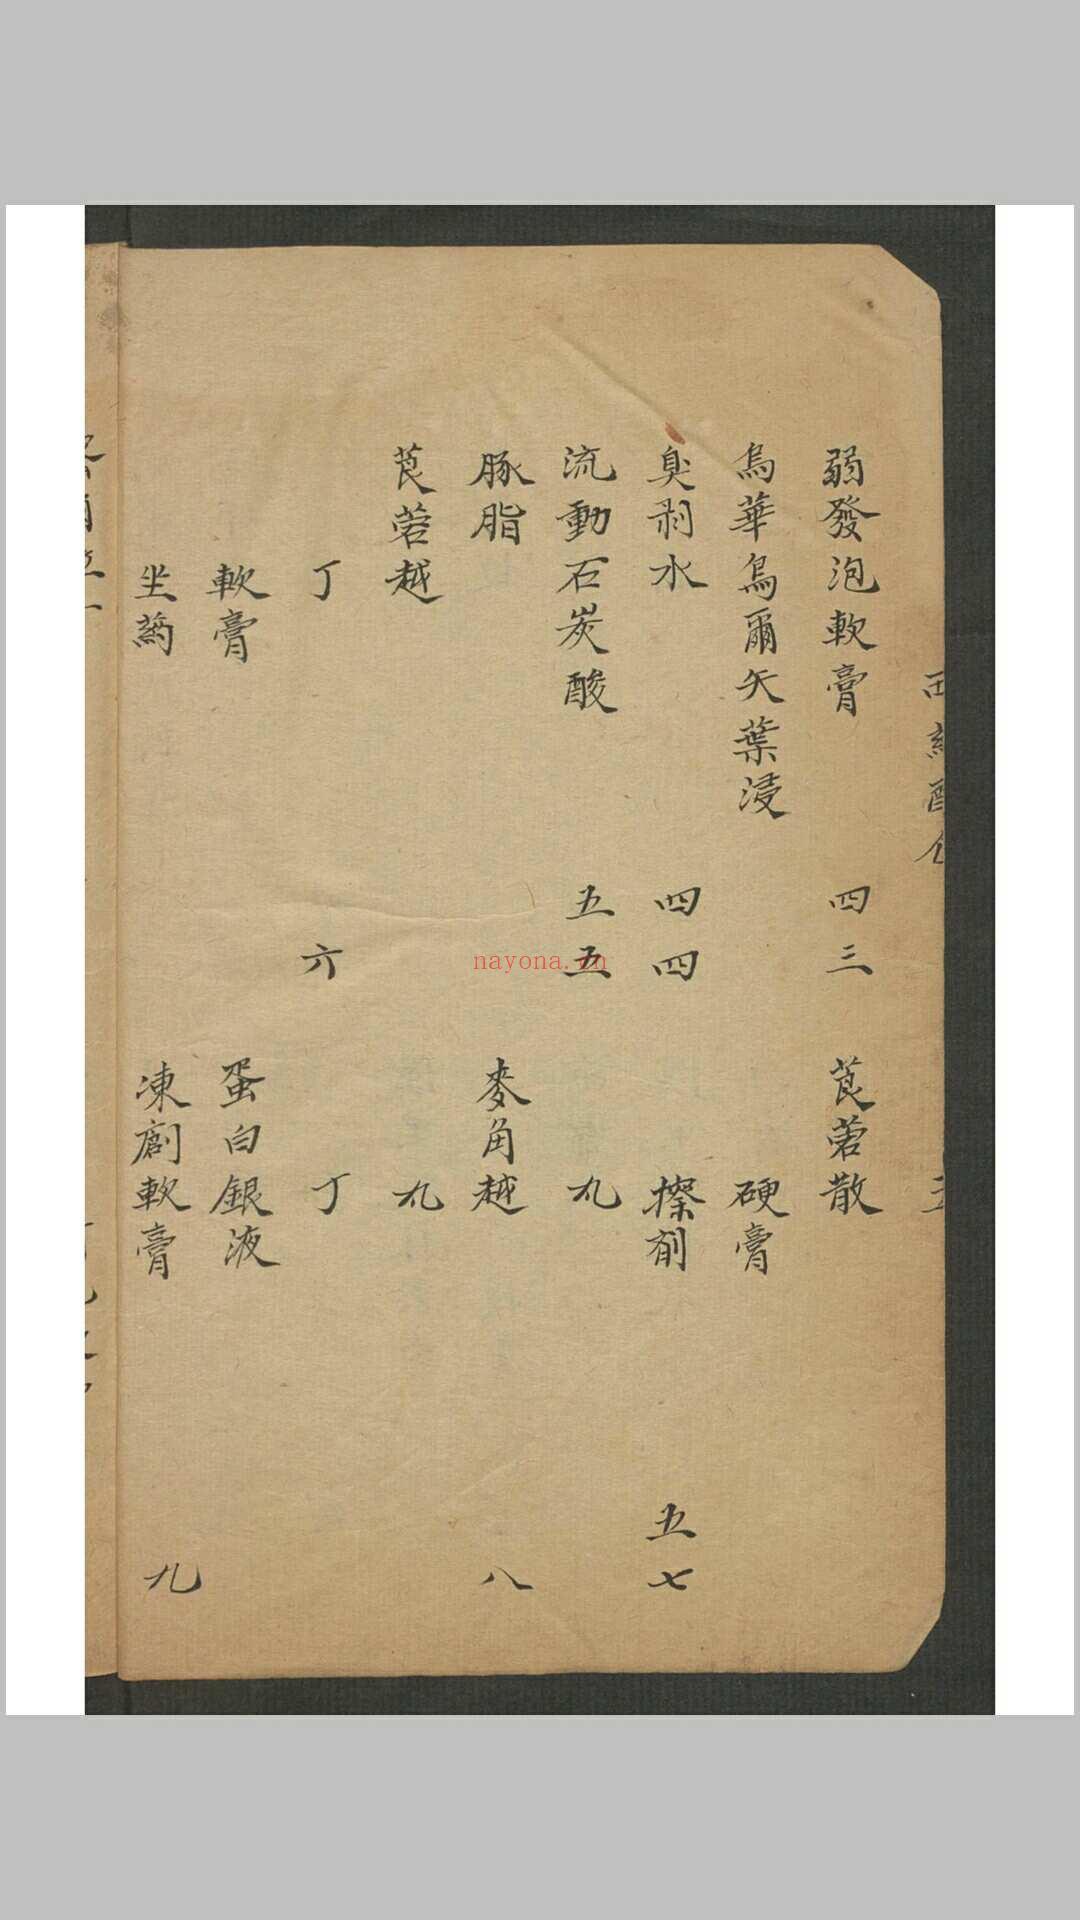 弱發泡軟膏 四三 莨菪散
烏華烏爾矢葉浸 硬膏
臭剥水 四四 擦剤 五七
流動石炭酸 五五 丸
豚脂 麥角越 八
莨菪越 丸
丁 六 丁
軟膏 蛋白銀液
坐药 凍創軟膏 九
nayona.cn